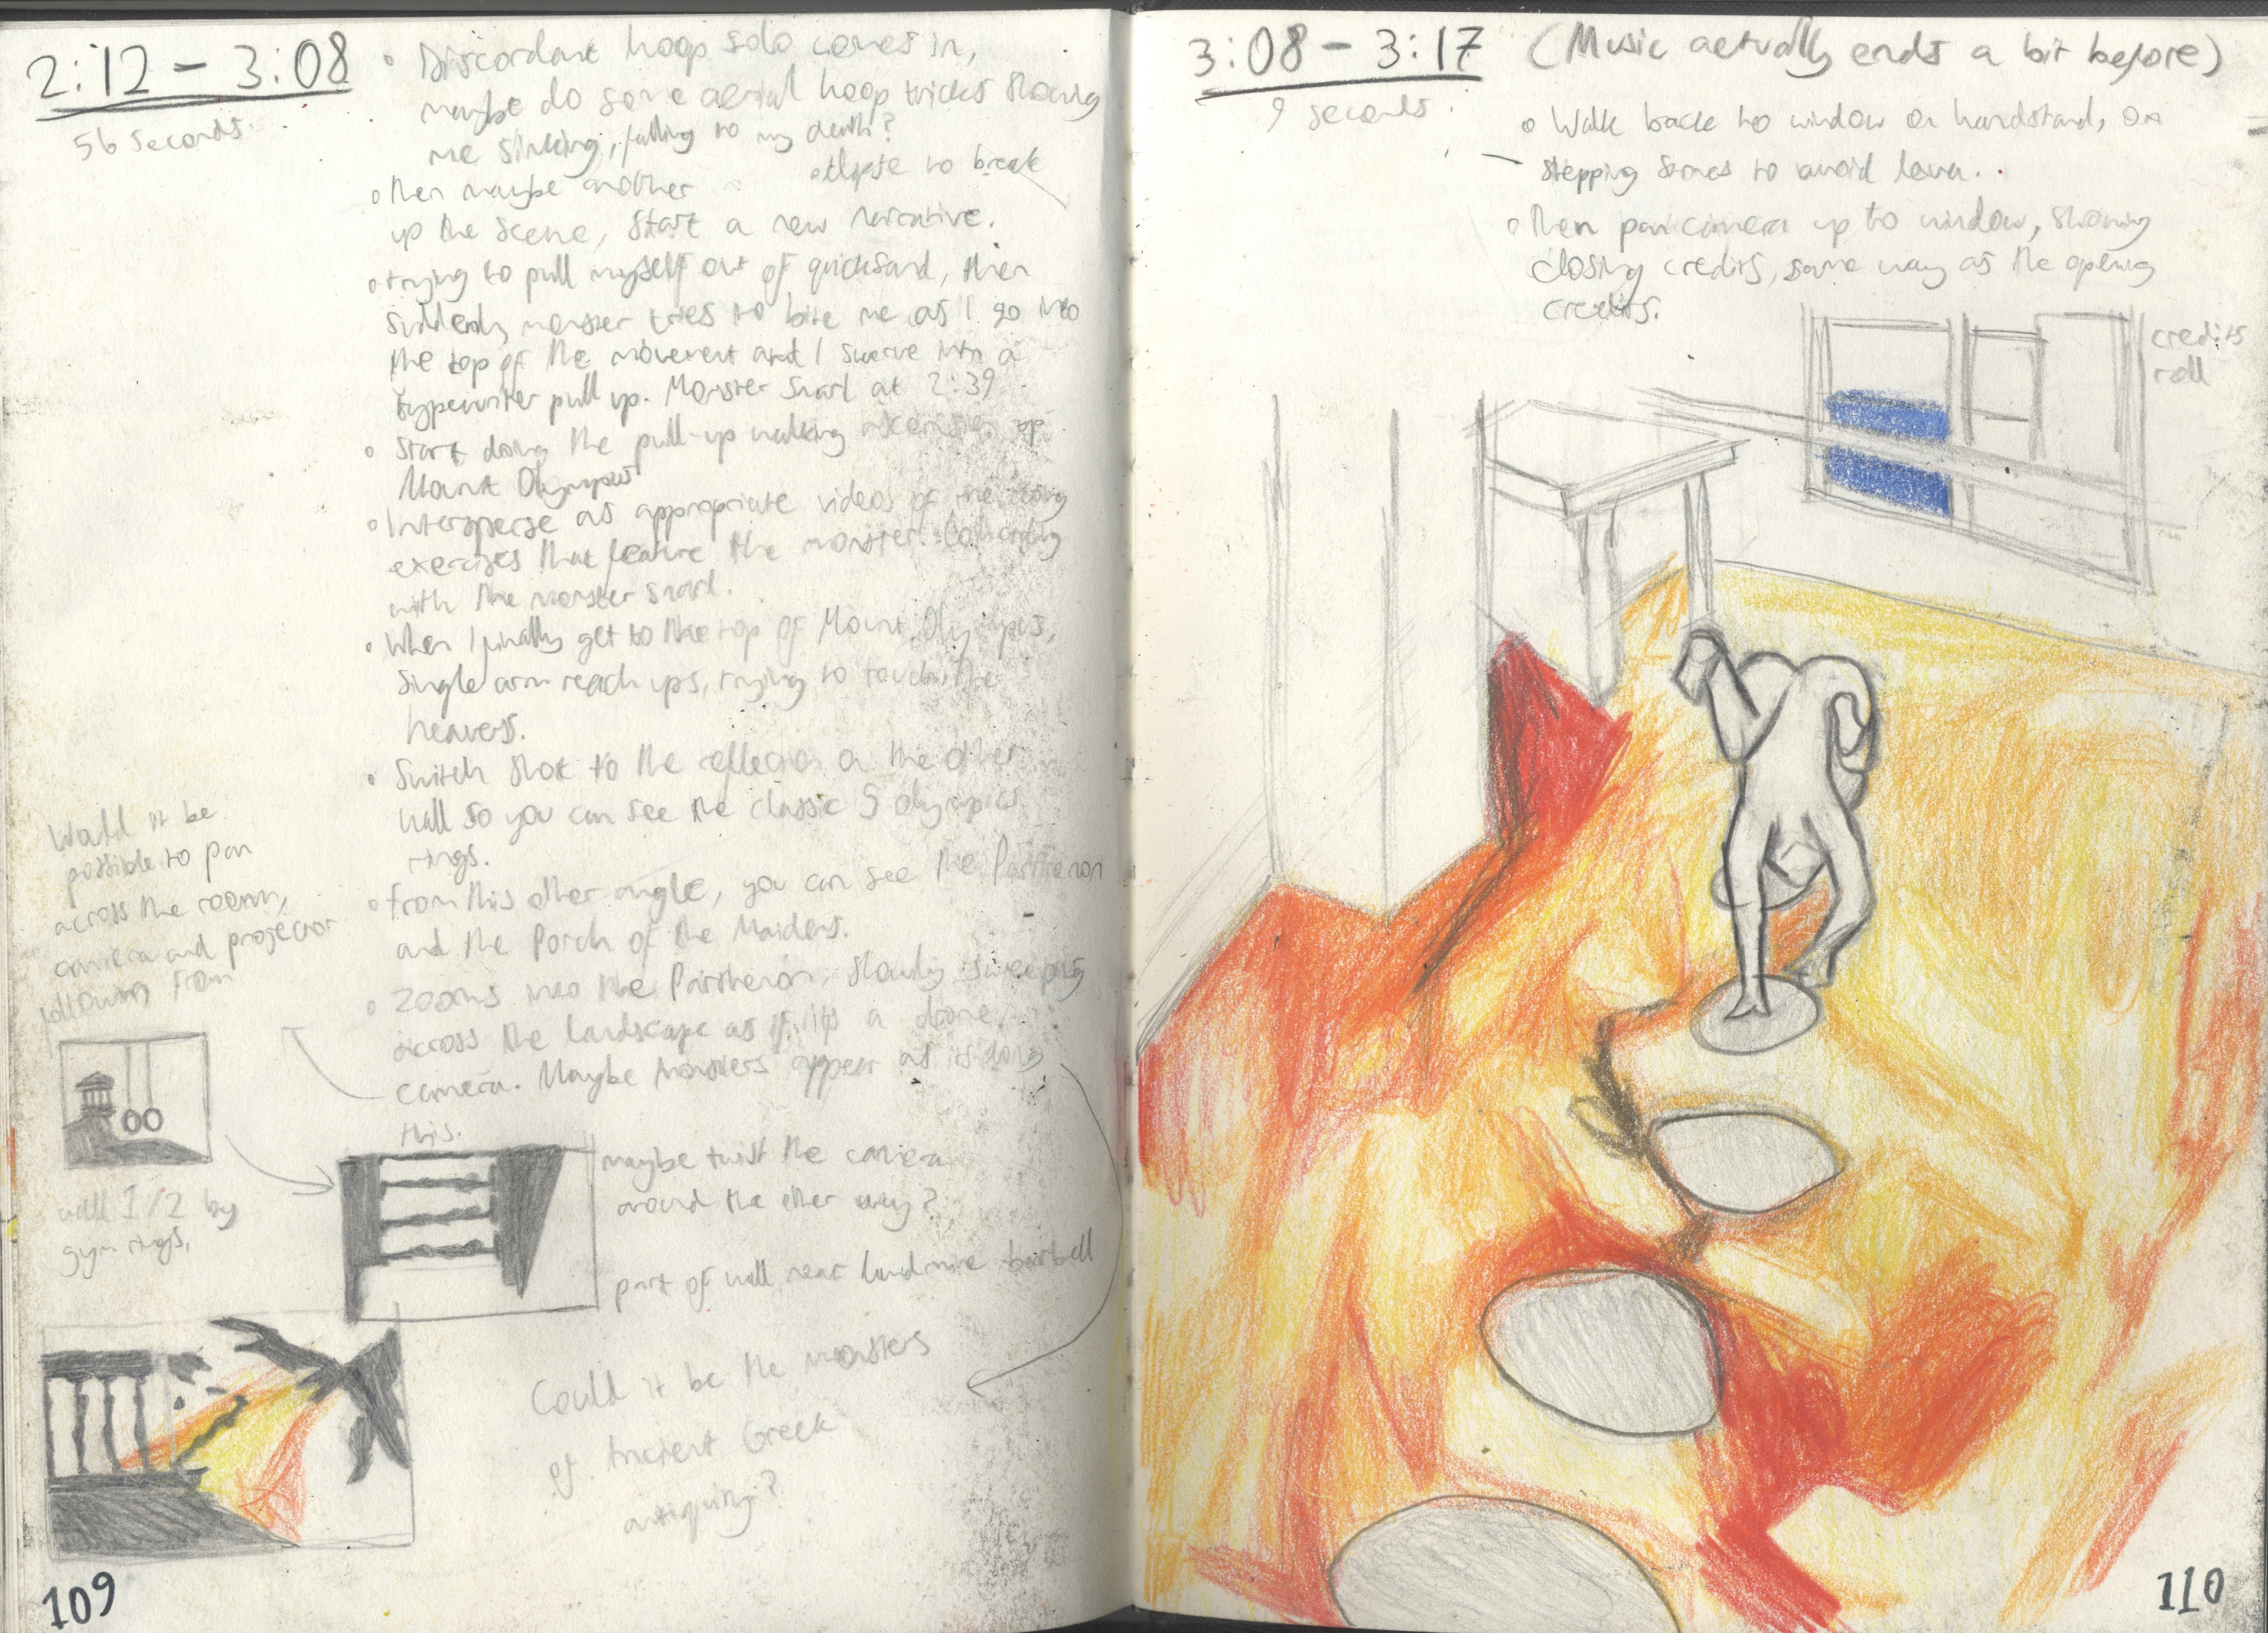 2:12 - 3:08
56 seconds.
◦ Discordant hoop solo comes in,
maybe do some aerial hoop tricks showing
me sinking, falling to my death?
◦ then maybe another ellipse to break
up the scene, start a new narrative.
◦ trying to pull myself out of quicksand, then
suddenly monster tries to bite me as I go into
the top of the movement and I swerve into a
typewriter pull up. Monster snarl at 2:39
◦ Start doing the pull-up walking ascension of
Mount Olympus
◦ Intersperse as appropriate videos of me doing
exercises that feature the monster. Coinciding
with the monster snarl.
◦ When I finally get to the top of Mount Olympus,
single arm reach ups, trying to touch the
heavens.
◦ Switch shot to the reflection on the other
wall so you can see the classic 5 olympics
rings.
◦ from this other angle, you can see the Parthenon
and the Porch of the Maidens.
◦ Zooms into the Parthenon, slowly sweeping
across the landscape as if it's a drone
camera. Maybe monsters appear as its doing
this.
Would it be
possible to pan
across the room,
camera and projector
following from
wall 1/2 by
gym rings,
maybe twist the camera
around the other way?
part of wall near landmine barbell
Could it be the monsters
of Ancient Greek
antiquity?
109
3:08 - 3:17 (Music actually ends a bit before)
9 seconds.
◦ Walk back to window on handstand, on
stepping stones to avoid lava..
◦ Then pan camera up to window, showing
closing credits, same way as the opening
credits.
credits
roll
110